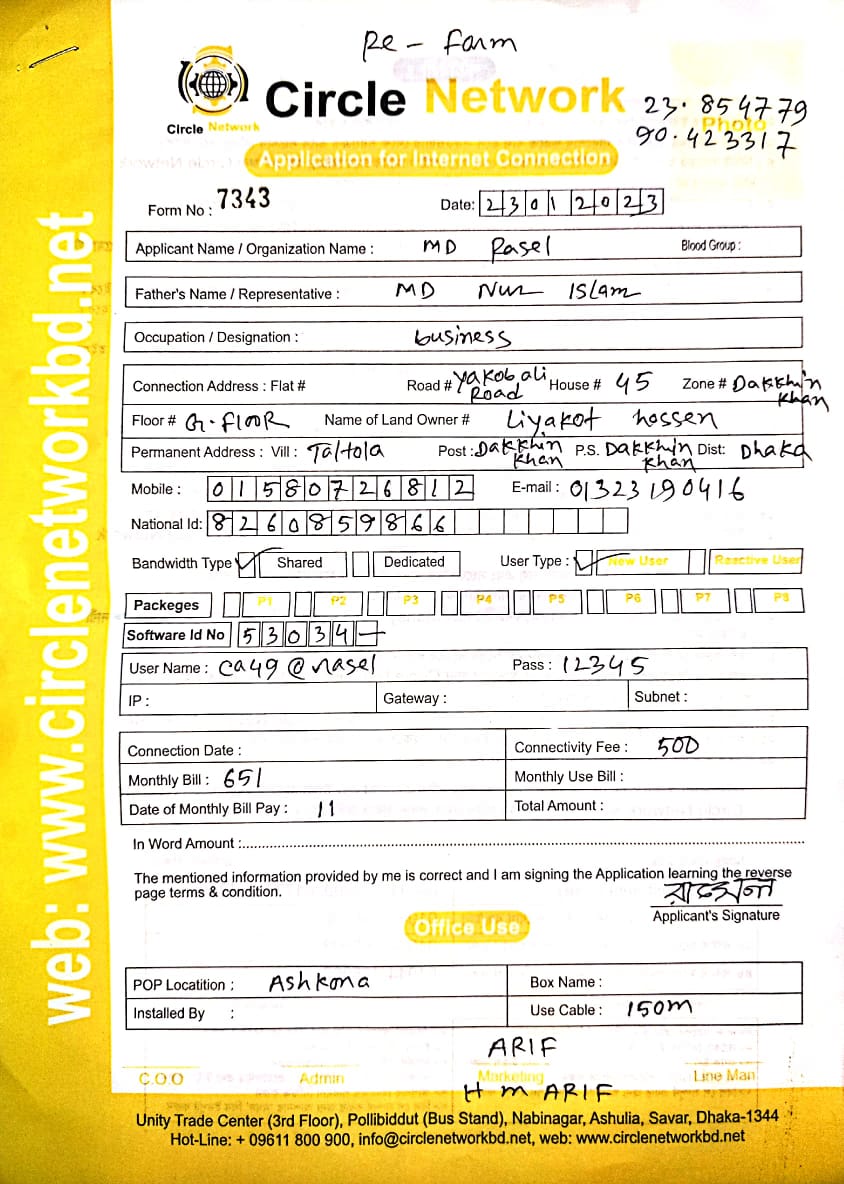 Re - Form
Circle Network
Circle Network
23.854779
Photo
90.423317
Application for Internet Connection
Form No : 7343 Date: 23012023
Applicant Name / Organization Name : MD Rasel Blood Group :
Father's Name / Representative : MD Nur Islam
Occupation / Designation : business
Connection Address : Flat # Road # Yakob ali Road House # 45 Zone # Dakkhin Khan
Floor # G. FlooR Name of Land Owner # Liyakot hossen
Permanent Address : Vill : Taltola Post : Dakkhin Khan P.S. Dakkhin Khan Dist: Dhaka
Mobile : 01580726812 E-mail : 01323190416
National Id: 8260859866
Bandwidth Type Shared Dedicated User Type : New User Reactive User
Packeges P1 P2 P3 P4 P5 P6 P7 P8
Software Id No 53034
User Name : ca49@rasel Pass : 12345
IP : Gateway : Subnet :
Connection Date : Connectivity Fee : 500
Monthly Bill : 651 Monthly Use Bill :
Date of Monthly Bill Pay : 11 Total Amount :
In Word Amount :
The mentioned information provided by me is correct and I am signing the Application learning the reverse
page terms & condition.
রাসেল
Applicant's Signature
Office Use
POP Locatition : Ashkona Box Name :
Installed By : Use Cable : 150m
ARIF
C.O.O Admin Marketing Line Man
H m ARIF
Unity Trade Center (3rd Floor), Pollibiddut (Bus Stand), Nabinagar, Ashulia, Savar, Dhaka-1344
Hot-Line: + 09611 800 900, info@circlenetworkbd.net, web: www.circlenetworkbd.net
web: www.circlenetworkbd.net